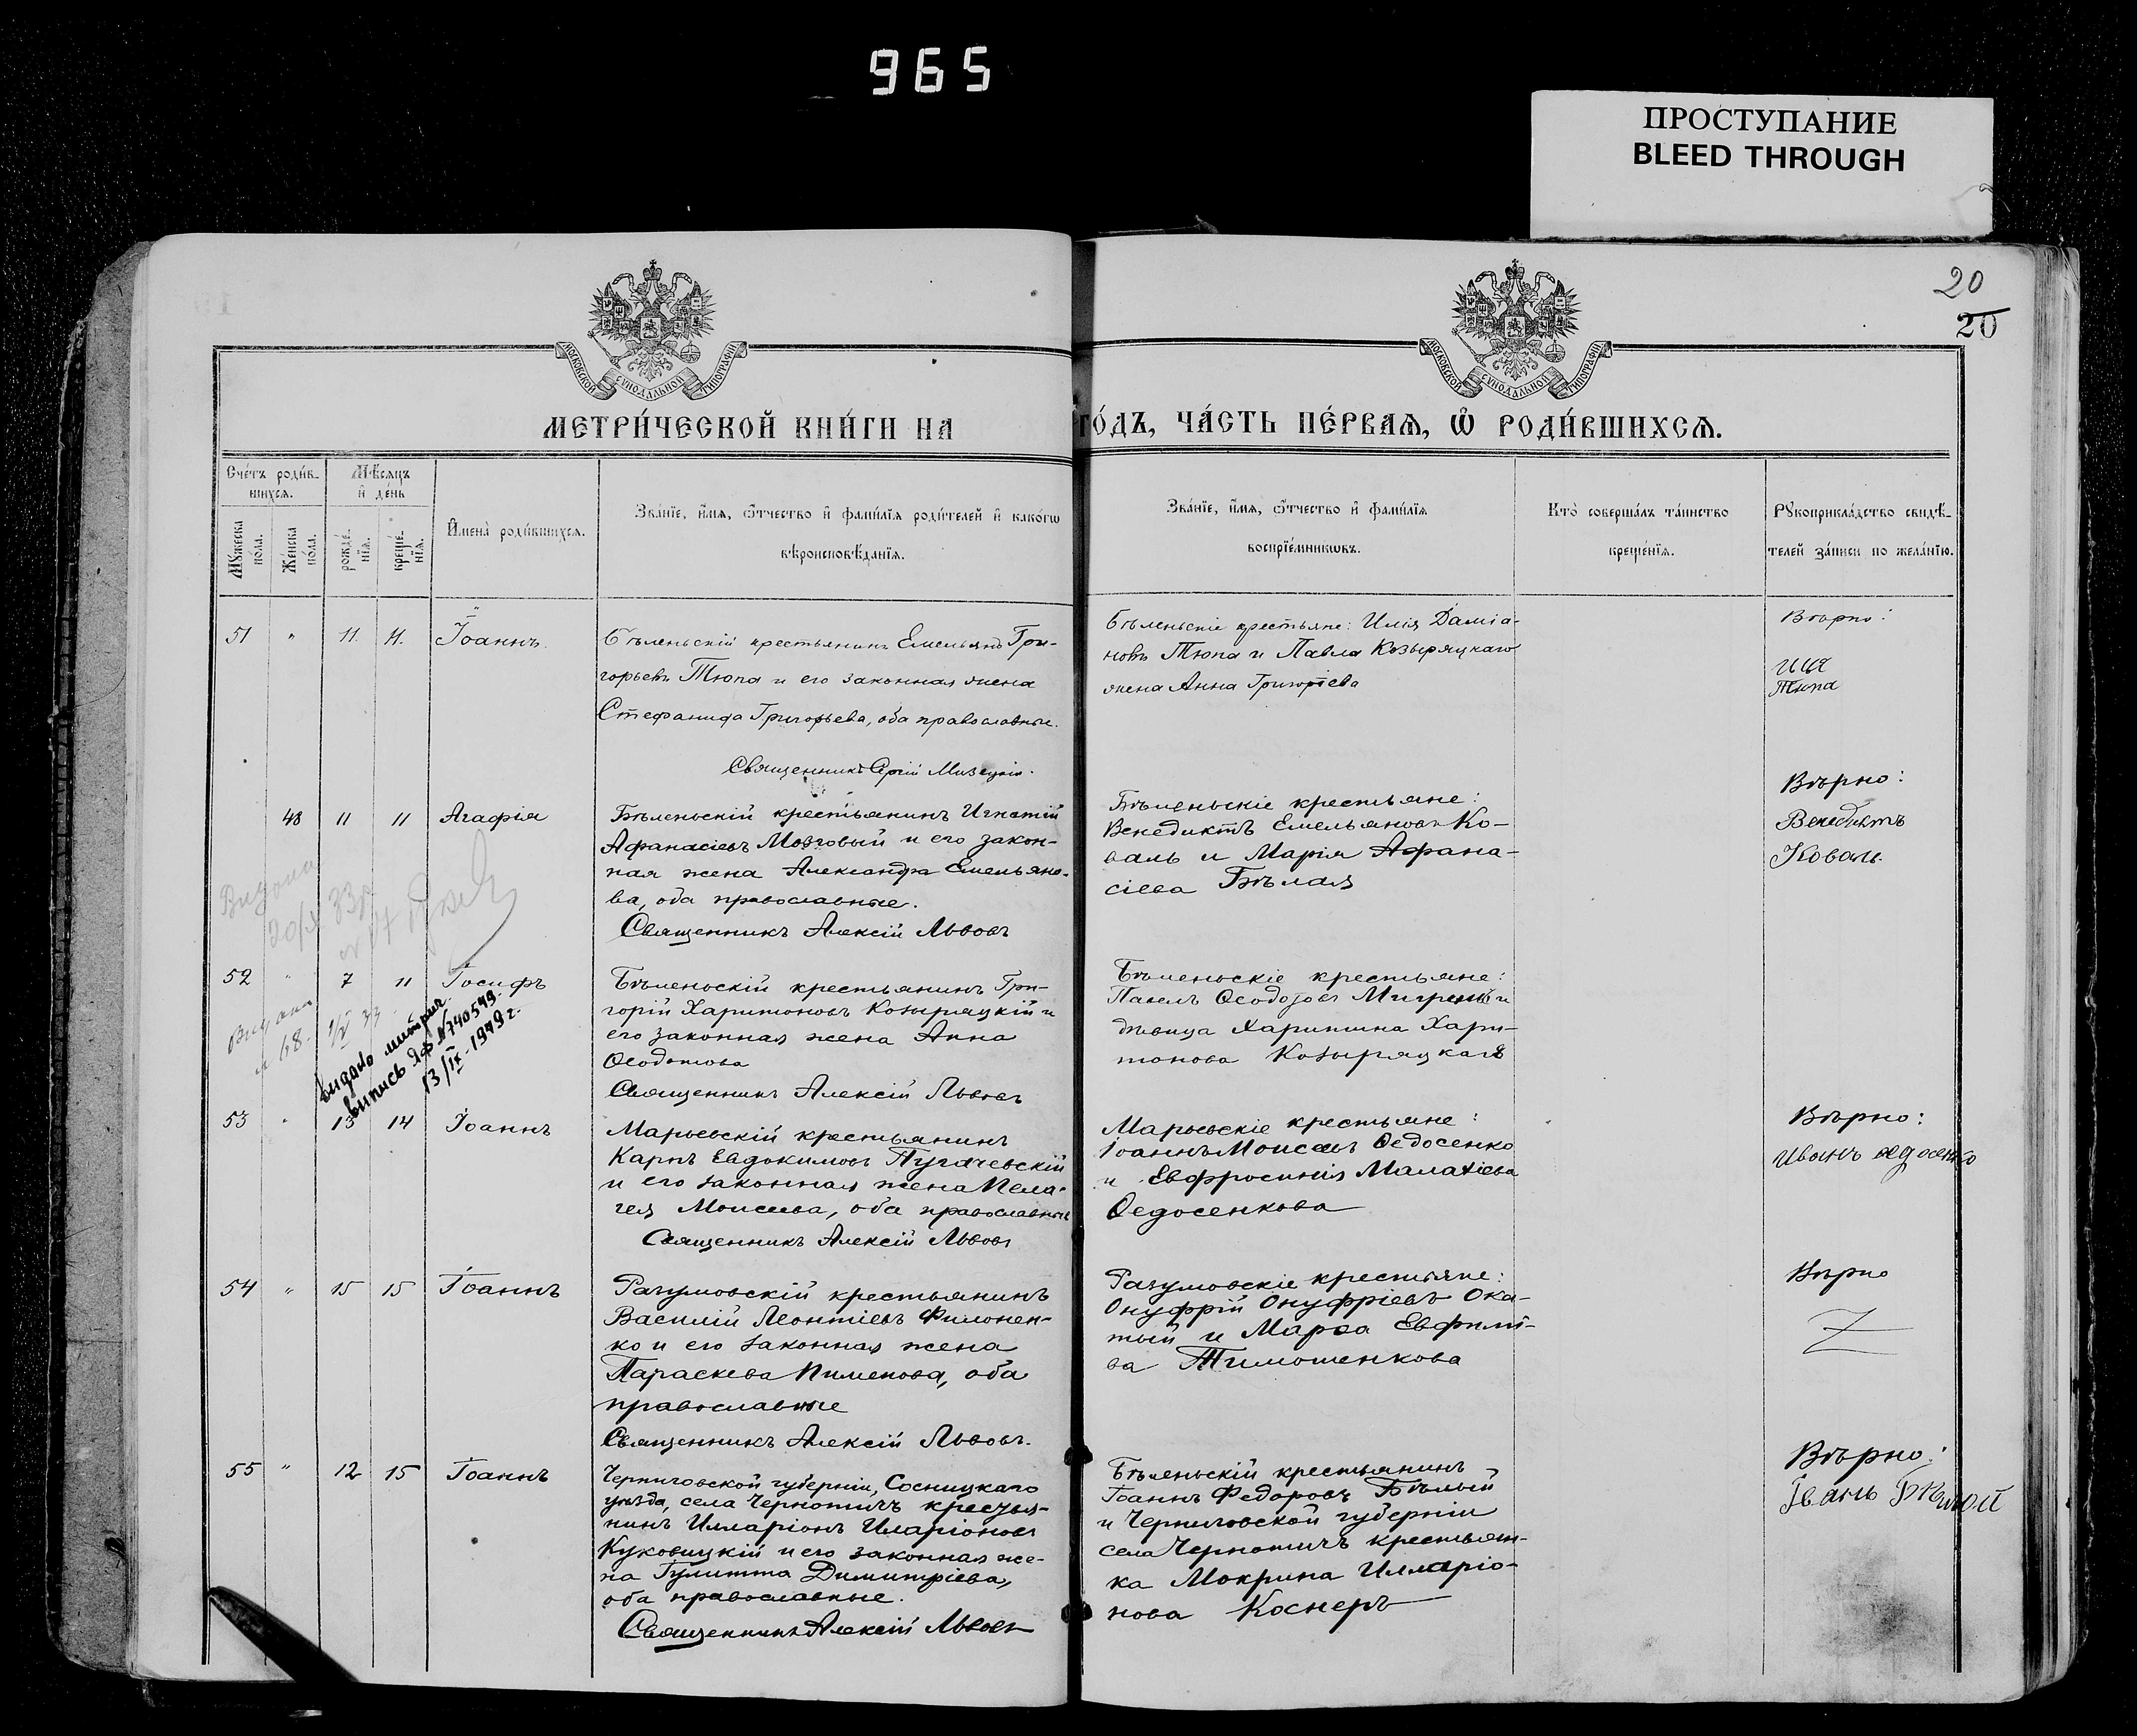 965
ПРОСТУПАНИЕ
BLEED THROUGH
20
20
МОСКОВСКОЙ СѴНОДАЛЬНОЙ ТИПОГРАФІИ
МОСКОВСКОЙ СѴНОДАЛЬНОЙ ТИПОГРАФІИ
МЕТРИ́ЧЕСКОЙ КНИ́ГИ НА
ГО́ДЪ, ЧА́СТЬ ПЕ́РВАѦ, Ѿ РОДИ́ВШИХСѦ.
Сче́тъ роди́в-
шихсѧ.
Мѣ́сяцъ
и҆ де́нь
Мꙋ́жеска
по́ла.
Же́нска
по́ла.
рожде́-
нїѧ.
креще́-
нїѧ.
И҆мена̀ роди́вшихсѧ.
Зва́нїе, и҆́мѧ, ѻ҆́тчество и҆ фами́лїѧ роди́телей и҆ како́гѡ
вѣроисповѣ́данїѧ.
Зва́нїе, и҆́мѧ, ѻ҆́тчество и҆ фами́лїѧ
воспрїе́мникѡвъ.
Кто̀ соверша́лъ та́инство
креще́нїѧ.
Рꙋкоприкла́дство свидѣ́-
телей за́писи по жела́нїю.
51 " 11. 11. Іоаннъ.
Бѣленьскій крестьянинъ Емельянъ Гри-
горьевъ Тюпа и его законная жена
Стефанида Григорьева, оба православные.
Священникъ Сергій Мизецкій.
Бѣленьскіе крестьяне: Илія Даміа-
новъ Тюпа и Павла Козыряцкаго
жена Анна Григорьева
Вѣрно:
Тюпа
48 11 11 Агафія
Бѣленьскій крестьянинъ Игнатій
Афанасіевъ Мозговый и его закон-
ная жена Александра Емельяно-
ва, оба православные.
Священникъ Алексій Львовъ
Бѣленьскіе крестьяне:
Венедиктъ Емельяновъ Ко-
валь и Марія Афана-
сіева Бѣлая
Вѣрно:
Венедиктъ
Коваль.
52 " 7 11 Іосифъ
Бѣленьскій крестьянинъ Гри-
горій Харитоновъ Козыряцкій и
его законная жена Анна
Ѳеодотова
Священникъ Алексій Львовъ
Бѣленьскіе крестьяне:
Павелъ Ѳеодотовъ и
дѣвица Харитина Хари-
тонова Козыряцкая
Видано
видано митрич.
випись дф №740549.
13/IX-1949 г.
53 " 13 14 Іоаннъ
Марьевскій крестьянинъ
Карпъ Евдокимовъ Пугачевскій
и его законная жена Пела-
гея Моисеева, оба православные
Священникъ Алексій Львовъ
Марьевскіе крестьяне:
Іоаннъ Моисеевъ Ѳедосенко
и Евфросинія Малахіева
Ѳедосенкова
Вѣрно:
Иванъ Ѳедосенко
54 " 15 15 Іоаннъ
Разумовскій крестьянинъ
Василій Леонтіевъ Филонен-
ко и его законная жена
Параскева Пименова, оба
православные
Священникъ Алексій Львовъ.
Разумовскіе крестьяне:
Онуфрій Онуфріевъ Ока-
тый и Марѳа Евфимі-
ва Тимошенкова
Вѣрно
55 " 12 15 Іоаннъ
Черниговской губерніи, Сосницкаго
уѣзда, села Чернотичъ крестья-
нинъ Илларіонъ Иларіоновъ
Куковицкій и его законная же-
на Іулитта Димитріева,
оба православные.
Священникъ Алексій Львовъ
Бѣленьскій крестьянинъ
Іоаннъ Федоровъ Бѣлый
и Черниговской губерніи
села Чернотичъ крестьян-
ка Мокрина Илларіо-
нова Коснеръ
Вѣрно:
Іванъ Бѣлый